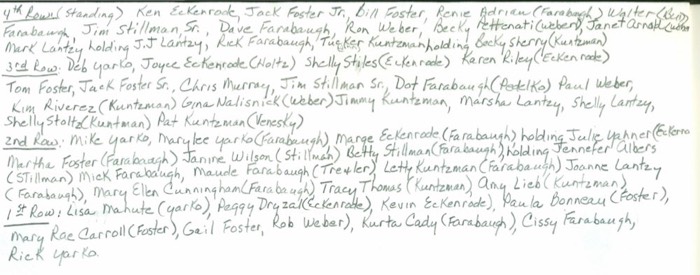 4th Row (Standing) Ken Eckenrode, Jack Foster Jr, Bill Foster, Renie Adrian (Farabaugh) Walter (Ben)
Farabaugh, Jim Stillman, Sr., Dave Farabaugh, Ron Weber, Becky Pettenati (Weber), Janet Arnold (Weber
Mark Lantzy holding J.J Lantzy, Rick Farabaugh, Tucker Kuntzman holding Becky Sherry (Kuntzman)
3rd Row: Deb Yarko, Joyce Eckenrode (Holtz) Shelly Stiles (Eckenrode) Karen Riley (Eckenrode)
Tom Foster, Jack Foster Sr., Chris Murray, Jim Stillman Sr, Dot Farabaugh (Pedelko) Paul Weber,
Kim Riverez (Kuntzman) Gina Nalisnick (Weber) Jimmy Kuntzman, Marsha Lantzy, Shelly Lantzy,
Shelly Stoltz (Kuntman) Pat Kuntzman (Venesky)
2nd Row: Mike Yarko, Marylee Yarko (Farabaugh) Marge Eckenrode (Farabaugh) holding Julie Yahner (Eckenro
Martha Foster (Farabaugh) Janine Wilson (Stillman) Betty Stillman (Farabaugh) holding Jennefer Albers
(Stillman) Mick Farabaugh, Maude Farabaugh (Trexler) Letty Kuntzman (Farabaugh) Joanne Lantzy
(Farabaugh), Mary Ellen Cunningham (Farabaugh) Tracy Thomas (Kuntzman) Amy Lieb (Kuntzman)
1st Row: Lisa Mahute (Yarko), Peggy Dryzal (Eckenrode), Kevin Eckenrode), Paula Bonneau (Foster),
Mary Rae Carroll (Foster), Gail Foster, Rob Weber), Kurta Cady (Farabaugh), Cissy Farabaugh,
Rick Yarko